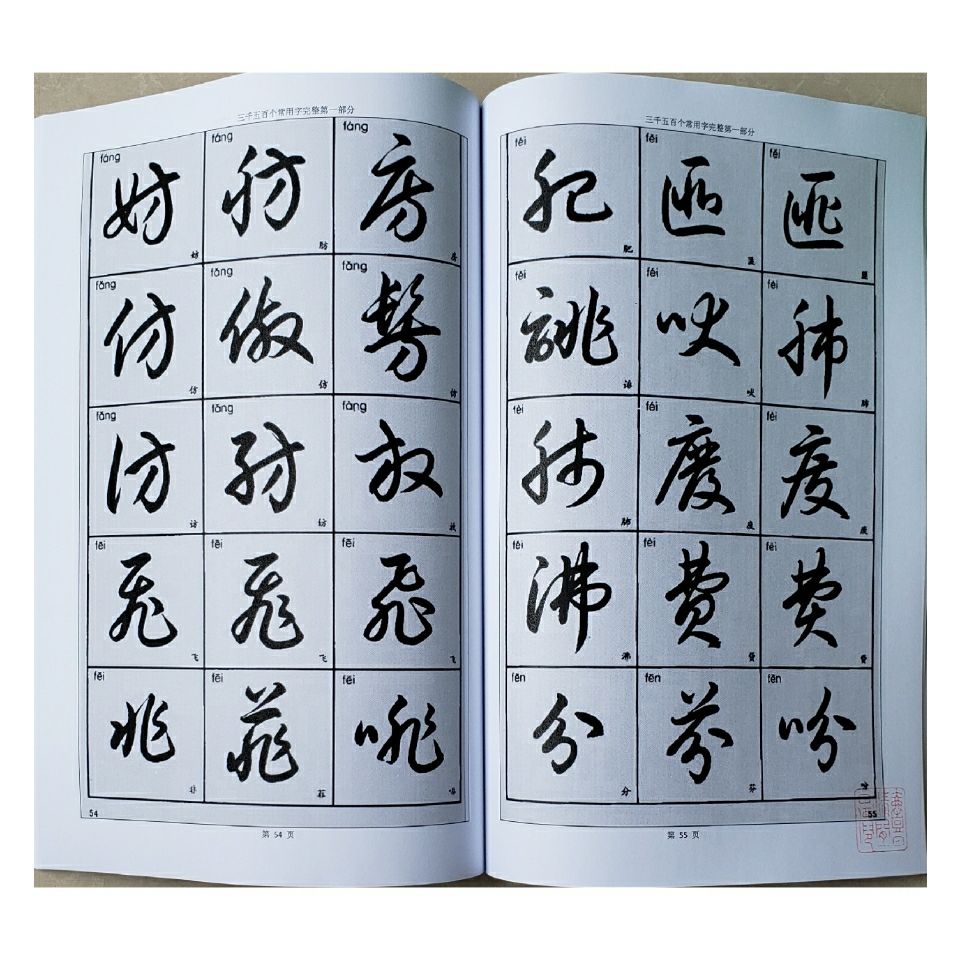 三千五百个常用字完整第一部分
fáng fáng fáng
妨 肪 房
妨 肪 房
fǎng fǎng fǎng
仿 倣 髣
仿 仿 仿
fǎng fǎng fàng
訪 紡 放
访 纺 放
fēi fēi fēi
飛 飛 飛
飞 飞 飞
fēi fēi fēi
非 菲 啡
非 菲 啡
54
第 54 页
三千五百个常用字完整第一部分
féi fěi fěi
肥 匪 匪
肥 匪 匪
fěi fèi fèi
誹 吠 肺
诽 吠 肺
fèi fèi fèi
肺 廢 廢
肺 废 废
fèi fèi fèi
沸 費 費
沸 费 费
fēn fēn fēn
分 芬 吩
分 芬 吩
55
第 55 页